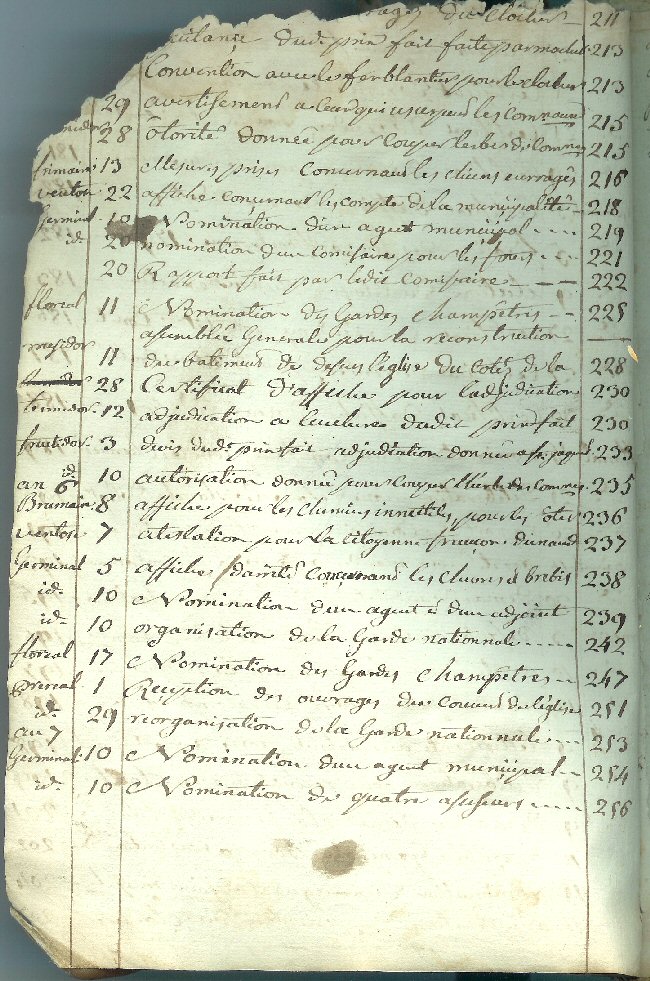 du Clocher 211
dud. prix fait faite par 213
Convention avec les ferblantier pour le clocher 213
29 avertisement a Ceux qui usurpent les Communs 215
28 otorité donnée pour Couper lherbe des Commes 215
frimaire 13 Mesures prises Concernant les chiens enragés 216
ventose 22 affiche concernant les compte de la municipalité 218
Germinal 10 Nomination dun agent municipal 219
id. 20 nomination dun comisaire pour les fours 221
20 Rapport fait par ledit comisaire 222
floreal 11 Nomination des Gardes Champêtres 225
asemblée Generale pour la reconstruction
mesidor 11 du batiment de desus leglise du coté de la 228
28 Certificat d'affiche pour ladjudication 230
termidor 12 adjudication a lenchere dudit prix fait 230
fructidor 3 devis dudt prix fait adjudication donnée a 233
id. 10 autorisation donnée pour couper lherbe des Commes 235
an 6
Brumaire 8 affiche pour les chemins innutiles pour les oter 236
ventose 7 atestation pour la citoyenne 237
Germinal 5 affiche darrêté concernant les chevres & brebis 238
id. 10 Nomination dun agent & dun adjoint 239
id. 10 organisation de la Garde nationnale 242
floreal 17 Nomination des Gardes Champêtres 247
prereal 1 Reception des ouvrages du couvert de leglise 251
id. 29 reorganisation de la Garde nationnale 253
an 7
Germinal 10 Nomination dun agent municipal 254
id. 10 Nomination de quatre aseseurs 256